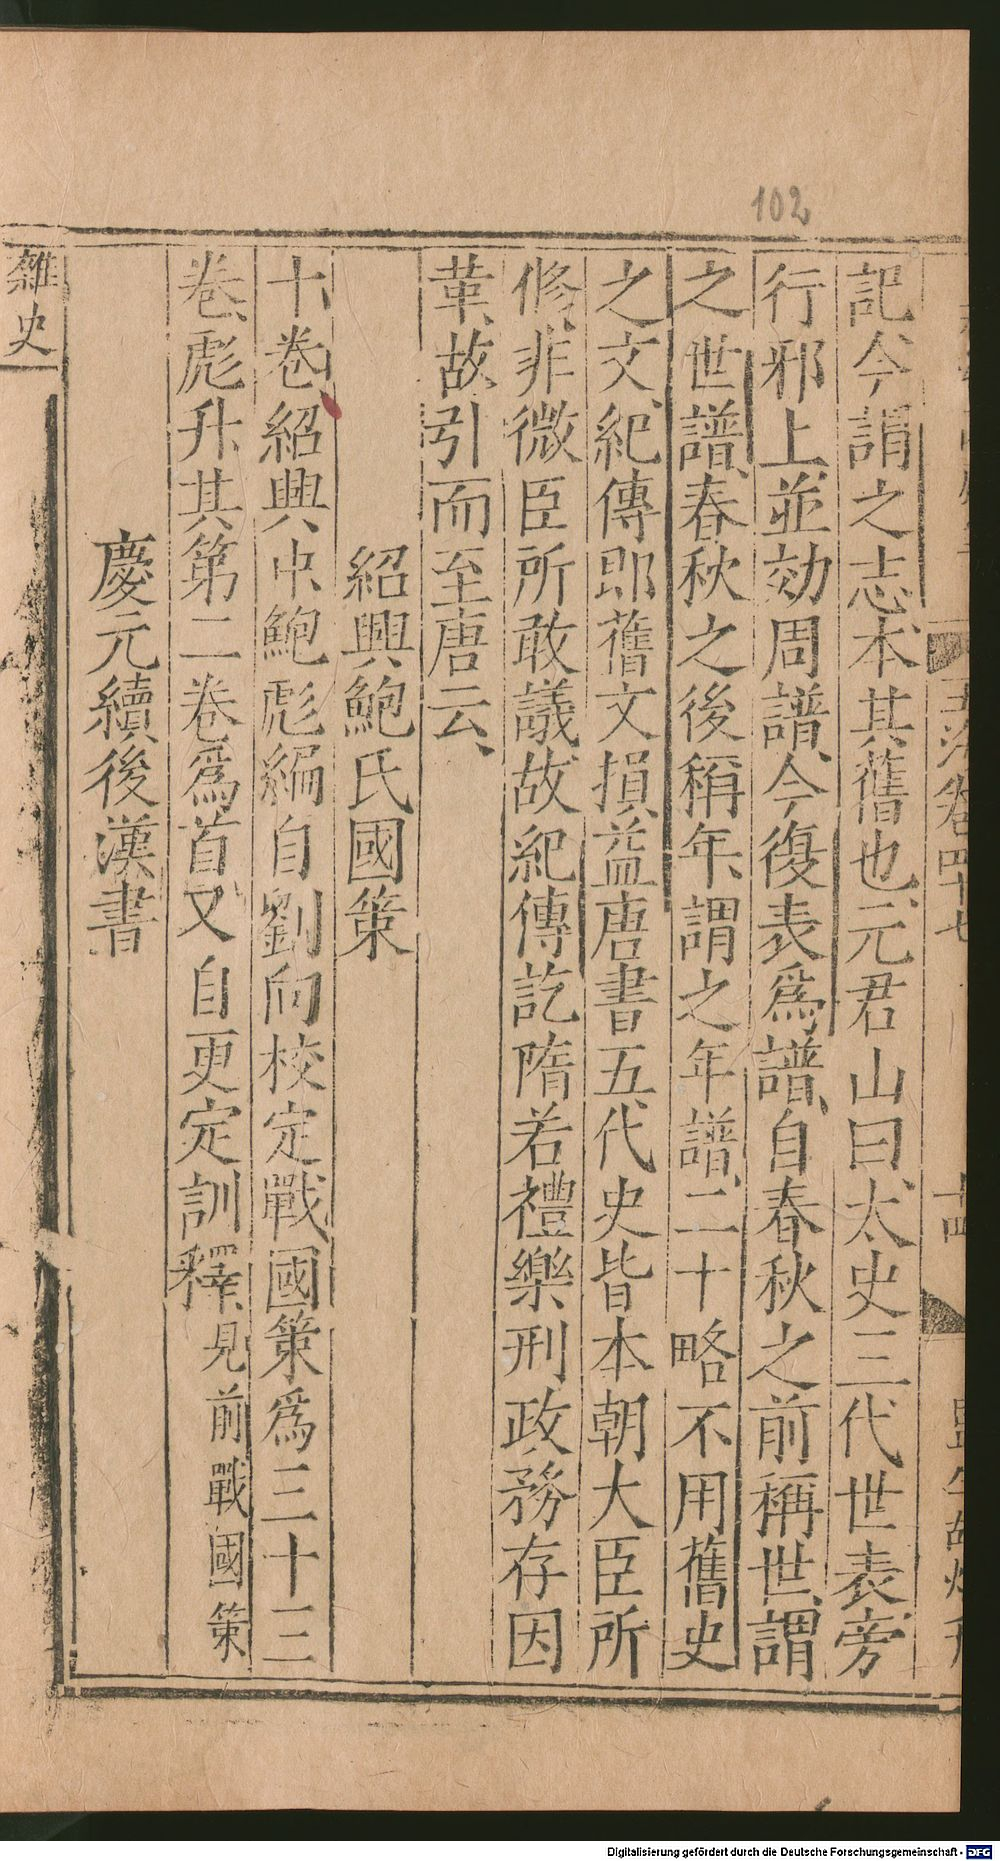 102
記今謂之志本其舊也元君山曰太史三代世表旁
行邪上並効周譜今復表爲譜自春秋之前稱世謂
之世譜春秋之後稱年謂之年譜二十略不用舊史
之文紀傳即舊文損益唐書五代史皆本朝大臣所
修非微臣所敢議故紀傳訖隋若禮樂刑政務存因
革故引而至唐云
紹興鮑氏國策
十卷紹興中鮑彪編自劉向校定戰國策爲三十三
卷彪升其第二卷爲首又自更定訓釋見前戰國策
慶元續後漢書
雜史
Digitalisierung gefördert durch die Deutsche Forschungsgemeinschaft - DFG